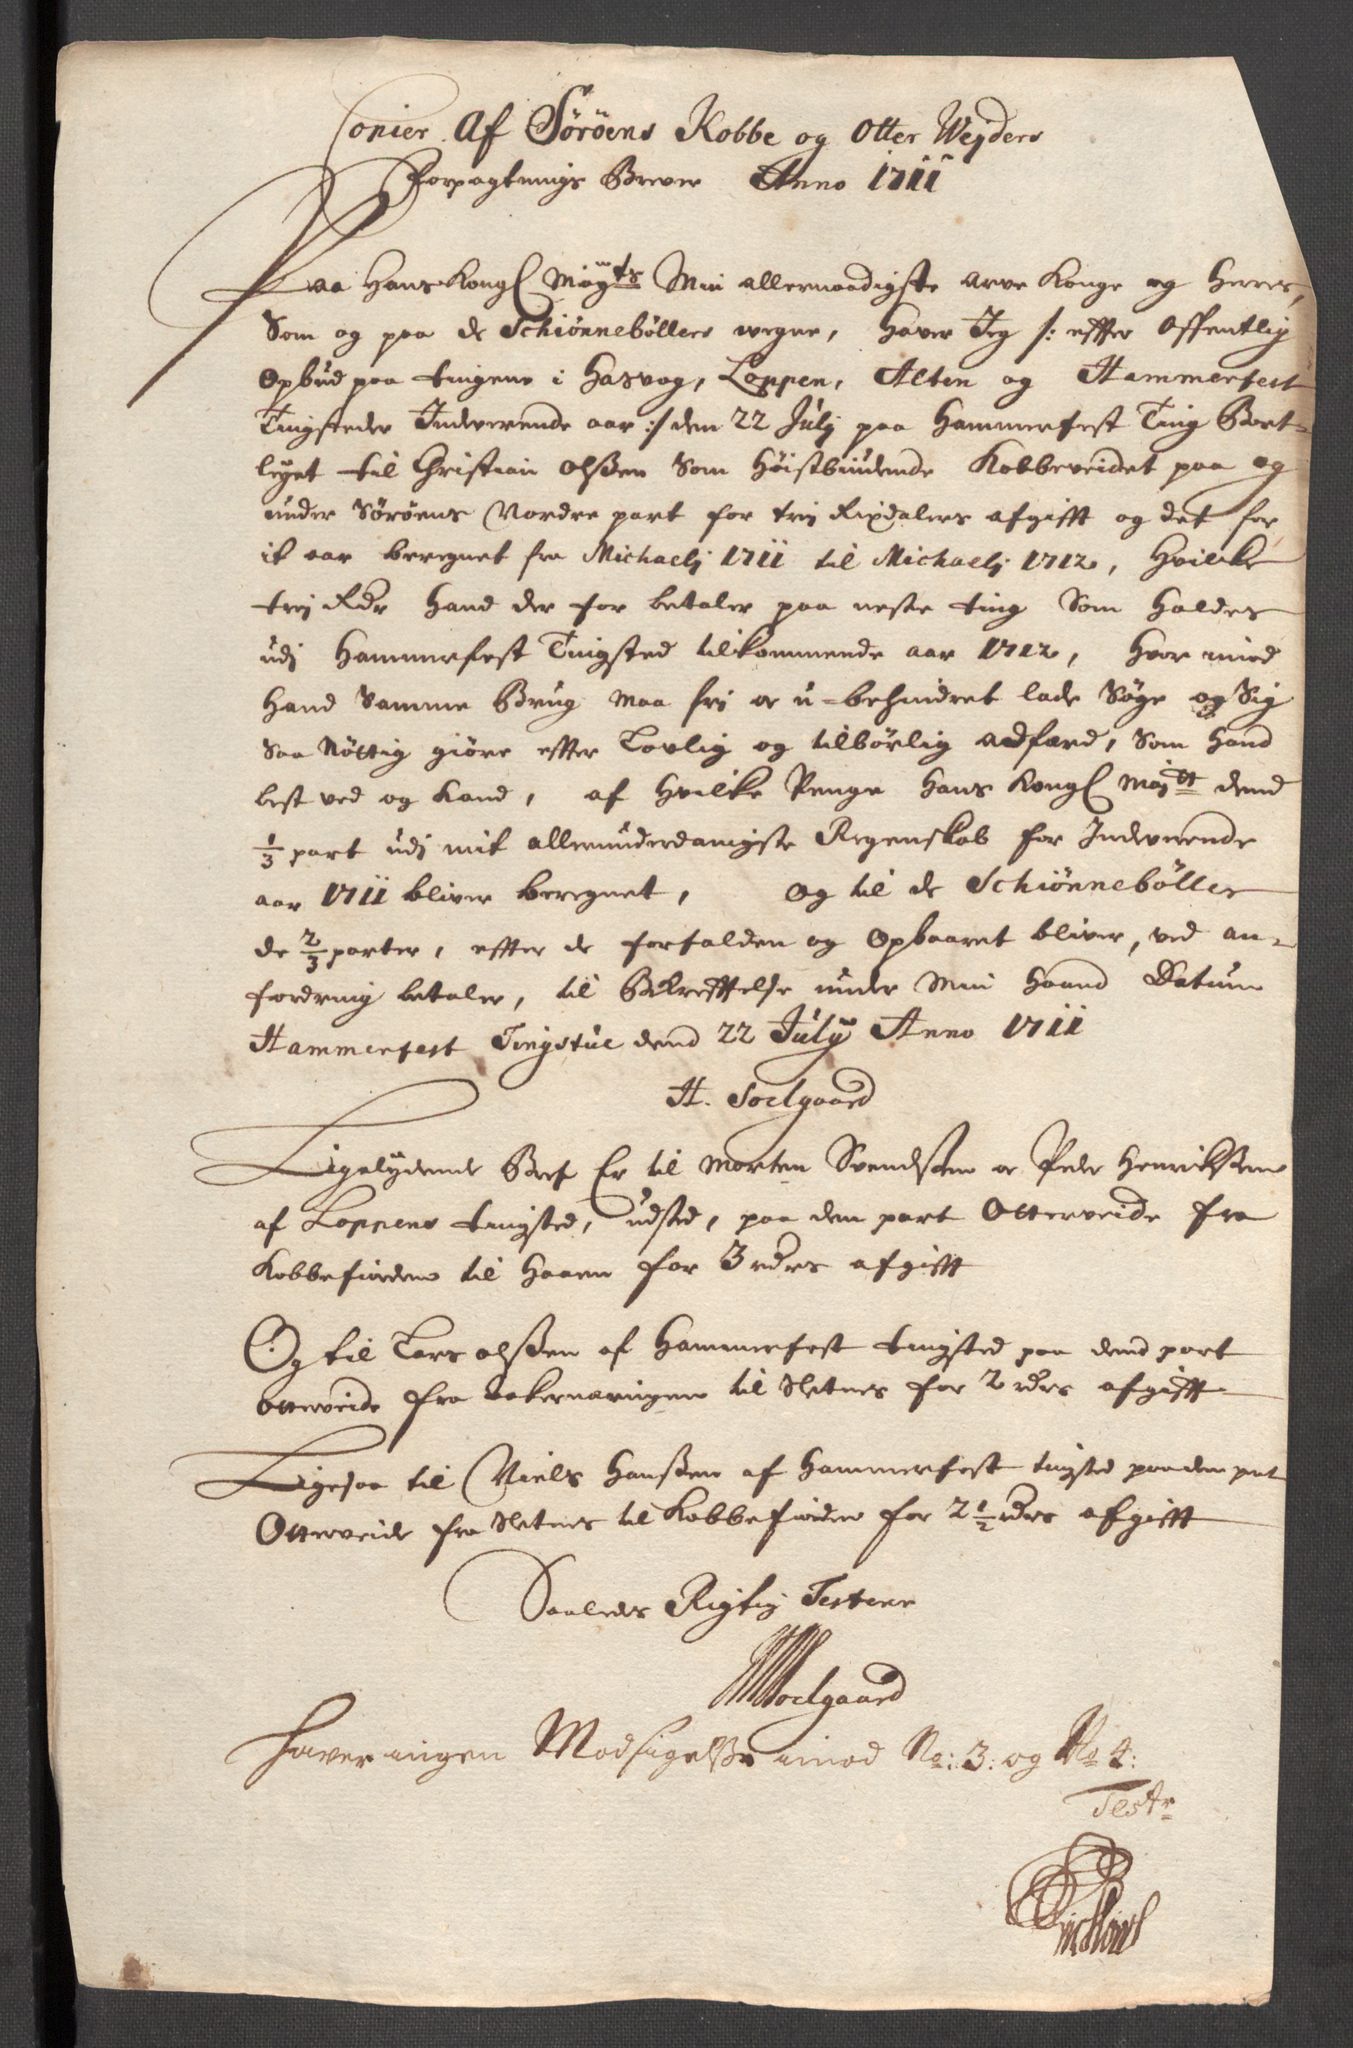 Copier af Söröens Kobbe og Otter Weyders
Forpagtnings Brever Anno 1711
Paa Hans Kongl Mayts Min allernaadigste arve Konge og Herres,
Som og paa de Schiönnebøllers vegne, haver Jeg /: effter offentlig
Opbud paa tingene i Hasvog, Loppen, Alten og Hammerfest
Tingsteder Indeverende aar :/ den 22 Julj paa Hammerfest Ting Bort-
leyet til Christian Olßen Som Høistbiudende Kobbeveidet paa og
under Sørøens Nordre part for trej Rixdalers afgifft og det for
it aar beregnet fra Michaelj 1711 til Michaelj 1712, Hvilke
trej Rdr hand der for betaler paa neste ting Som holdes
udj Hammerfest Tingsted tilkommende aar 1712, hvor imod
hand Samme Brug maa frj oc u-behindret lade Søge og Sig
Saa Nöttig giöre effter Lovlig og tilbörlig adfærd, Som hand
best ved og kand, af hvilke Penge Hans Kongl Maytt dend
1/3 part udj mit allerunderdanigste Regenskab for Indeverende
aar 1711 bliver beregnet, og til de Schiönnebøller
de 2/3 parter, effter de forfalden og Opbaaret bliver, ved an-
fordring betaler, til Bekrefftelse under Min Haand Datum
Hammerfest Tingstue dend 22 July Anno 1711
H. Soelgaard
Ligelydende Bref Er til Morten Svendßen oc Peder Henrikßen
af Loppens tingsted, udsted, paa den part Otterveide fra
Kobbefiorden til Haaen for 3 rdrs afgifft
Og til Lars Olßen af Hammerfest tingsted paa dend part
otterveide fra Aakernæringen til Sletnes for 2 rdrs afgifft
Ligesaa til Niels Hanßen af Hammerfest tingsted paa den part
Otterveide fra Sletnes til Kobbefiorden for 2 1/2 rdrs afgifft
Saaledes Rigtig Testerer
HSoelgaard
Haver ingen Modsigelße imod No: 3: og No 4:
Testr